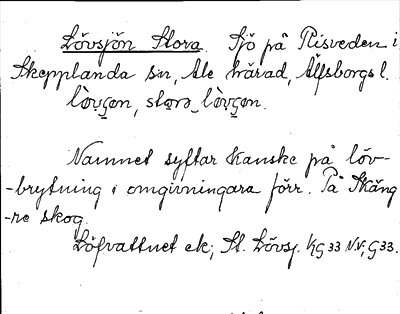 Lövsjön Stora. Sjö på Risveden i
Skepplanda sn, Ale härad, Älfsborgs l.
lòvʂɷn, stɷrə lòvʂɷn.
Namnet syftar kanske på löv-
-brytning i omgivningara förr. På Skäng
-re skog.
Löfvattnet ek; St. Lövsj. KG 33 N.V; G 33.